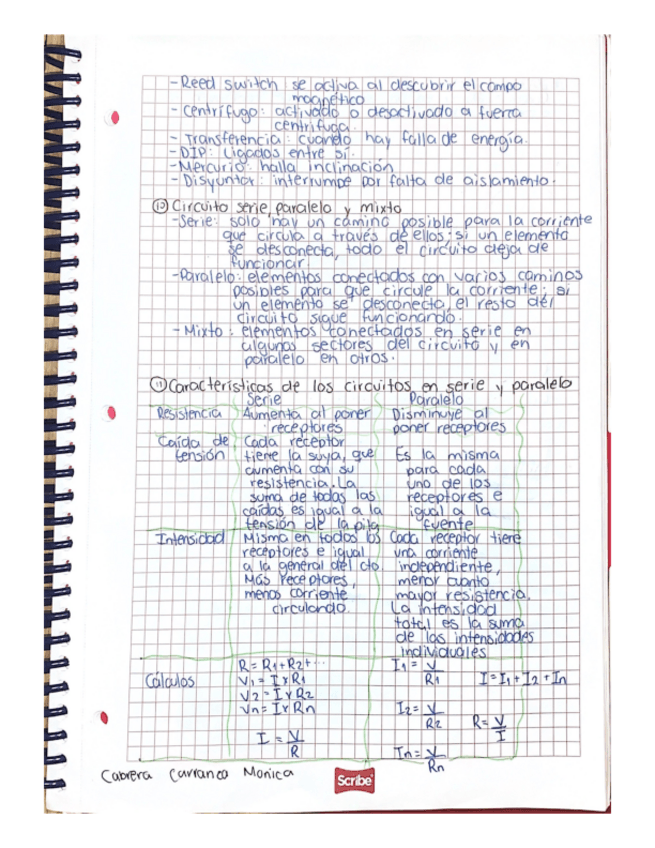 -Reed switch se activa al descubrir el campo
magnético
-Centrífugo: activado o desactivado a fuerza
centrífuga.
-Transferencia: cuando hay falla de energía.
-DIP: Ligados entre sí.
-Mercurio: halla inclinación
-Disyuntor: interrumpe por falta de aislamiento.
⑩ Circuito serie, paralelo y mixto
-Serie: solo hay un camino posible para la corriente
que circula a través de ellos; si un elemento
se desconecta, todo el circuito deja de
funcionar.
-Paralelo: elementos conectados con varios caminos
posibles para que circule la corriente; si
un elemento se desconecta, el resto del
circuito sigue funcionando.
-Mixto: elementos conectados en serie en
algunos sectores del circuito y en
paralelo en otros.
⑪ Características de los circuitos en serie y paralelo
Serie Paralelo
Resistencia Aumenta al poner Disminuye al
receptores poner receptores
Caída de Cada receptor
tensión tiene la suya, que Es la misma
aumenta con su para cada
resistencia. La uno de los
suma de todas las receptores e
caídas es igual a la igual a la
tensión de la pila fuente
Intensidad Misma en todos los Cada receptor tiene
receptores e igual una corriente
a la general del cto. independiente,
Más receptores, menor cuanto
menos corriente mayor resistencia.
circulando. La intensidad
total es la suma
de las intensidades
individuales
Cálculos
R = R1 + R2 + ...
V1 = I x R1
V2 = I x R2
Vn = I x Rn
I = V/R
I1 = V/R1 I = I1 + I2 + In
I2 = V/R2 R = V/I
In = V/Rn
Cabrera Carranco Monica
Scribe